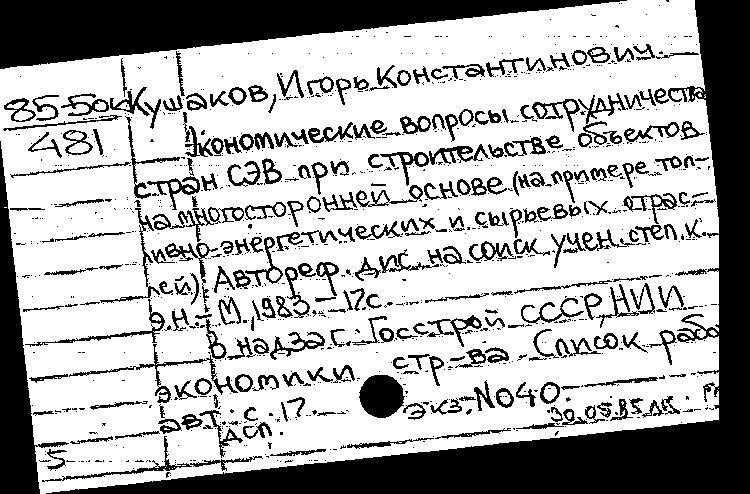 85-5ок Кушаков, Игорь Константинович.
481
Экономические вопросы сотрудничества
стран СЭВ при строительстве объектов
на многосторонней основе (на примере топ-
ливно-энергетических и сырьевых отрас-
лей): Автореф. дис. на соиск учен. степ. к.
э.н. - М., 1983. - 17с.
В надзаг.: Госстрой СССР, НИИ
экономики стр-ва. Список рабо
авт.: с. 17. экз. №040.
дсп. 30.05.85
5